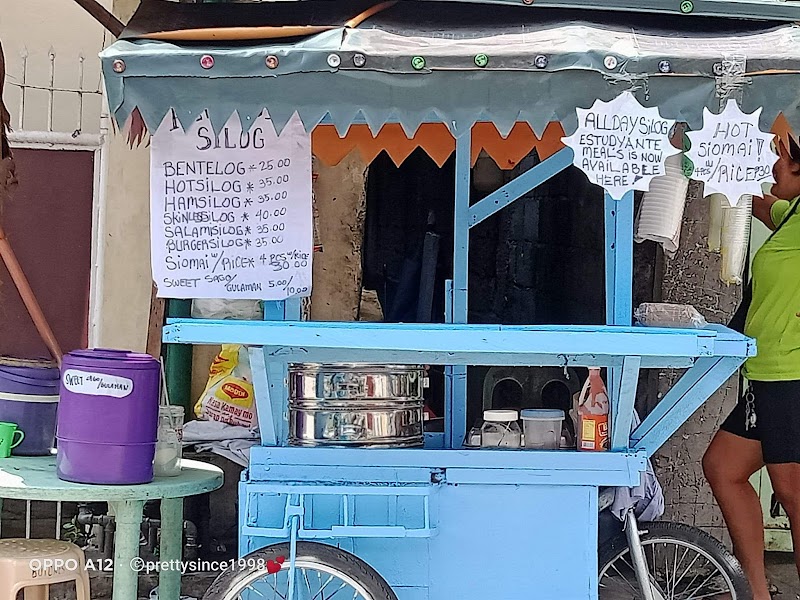 SILOG
BENTELOG * 25.00
HOTSILOG * 35.00
HAMSILOG * 35.00
SKINLESSILOG * 40.00
SALAMISILOG * 35.00
BURGERSILOG * 35.00
SiOMAi w/ RiCE * 4 PCS w/ RiCE 30.00
SWEET SAGO/
GULAMAN 5.00/10.00
ALLDAY SiLOG
ESTUDYANTE
MEALS IS NOW
AVAILABLE
HERE!
HOT
SiOMAi!
w/ 4PCS RiCE P30
SWEET SAGO/GULAMAN
MAGGI
OPPO A12 · ©prettysince1998